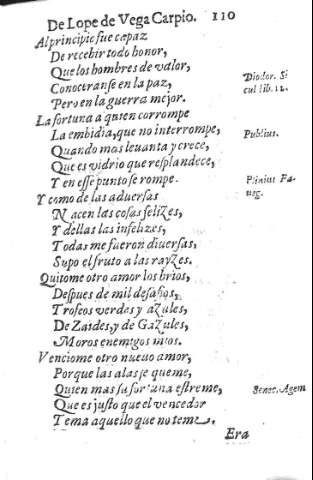 De Lope de Vega Carpio. 110
Al principio fue capaz
De recebir todo honor,
Que los hombres de valor,
Conoceranse en la paz,
Pero en la guerra mejor.
Diodor. Si
cul lib. 12.
La fortuna a quien corrompe
La embidia, que no interrompe,
Publius.
Quando mas leuanta y crece,
Que es vidrio que resplandece,
Y en esse punto se rompe.
Plinius Pa-
neg.
Y como de las aduersas
Nacen las cosas felizes,
Y dellas las infelizes,
Todas me fueron diuersas,
Supo el fruto a las rayzes.
Quitome otro amor los brios,
Despues de mil desafios,
Trofeos verdes y azules,
De Zaides, y de Gazules,
Moros enemigos mios.
Venciome otro nueuo amor,
Porque las alas se queme,
Quien mas su fortuna estreme,
Senec. Agem
Que es justo que el vencedor
Tema aquello que no teme,
Era